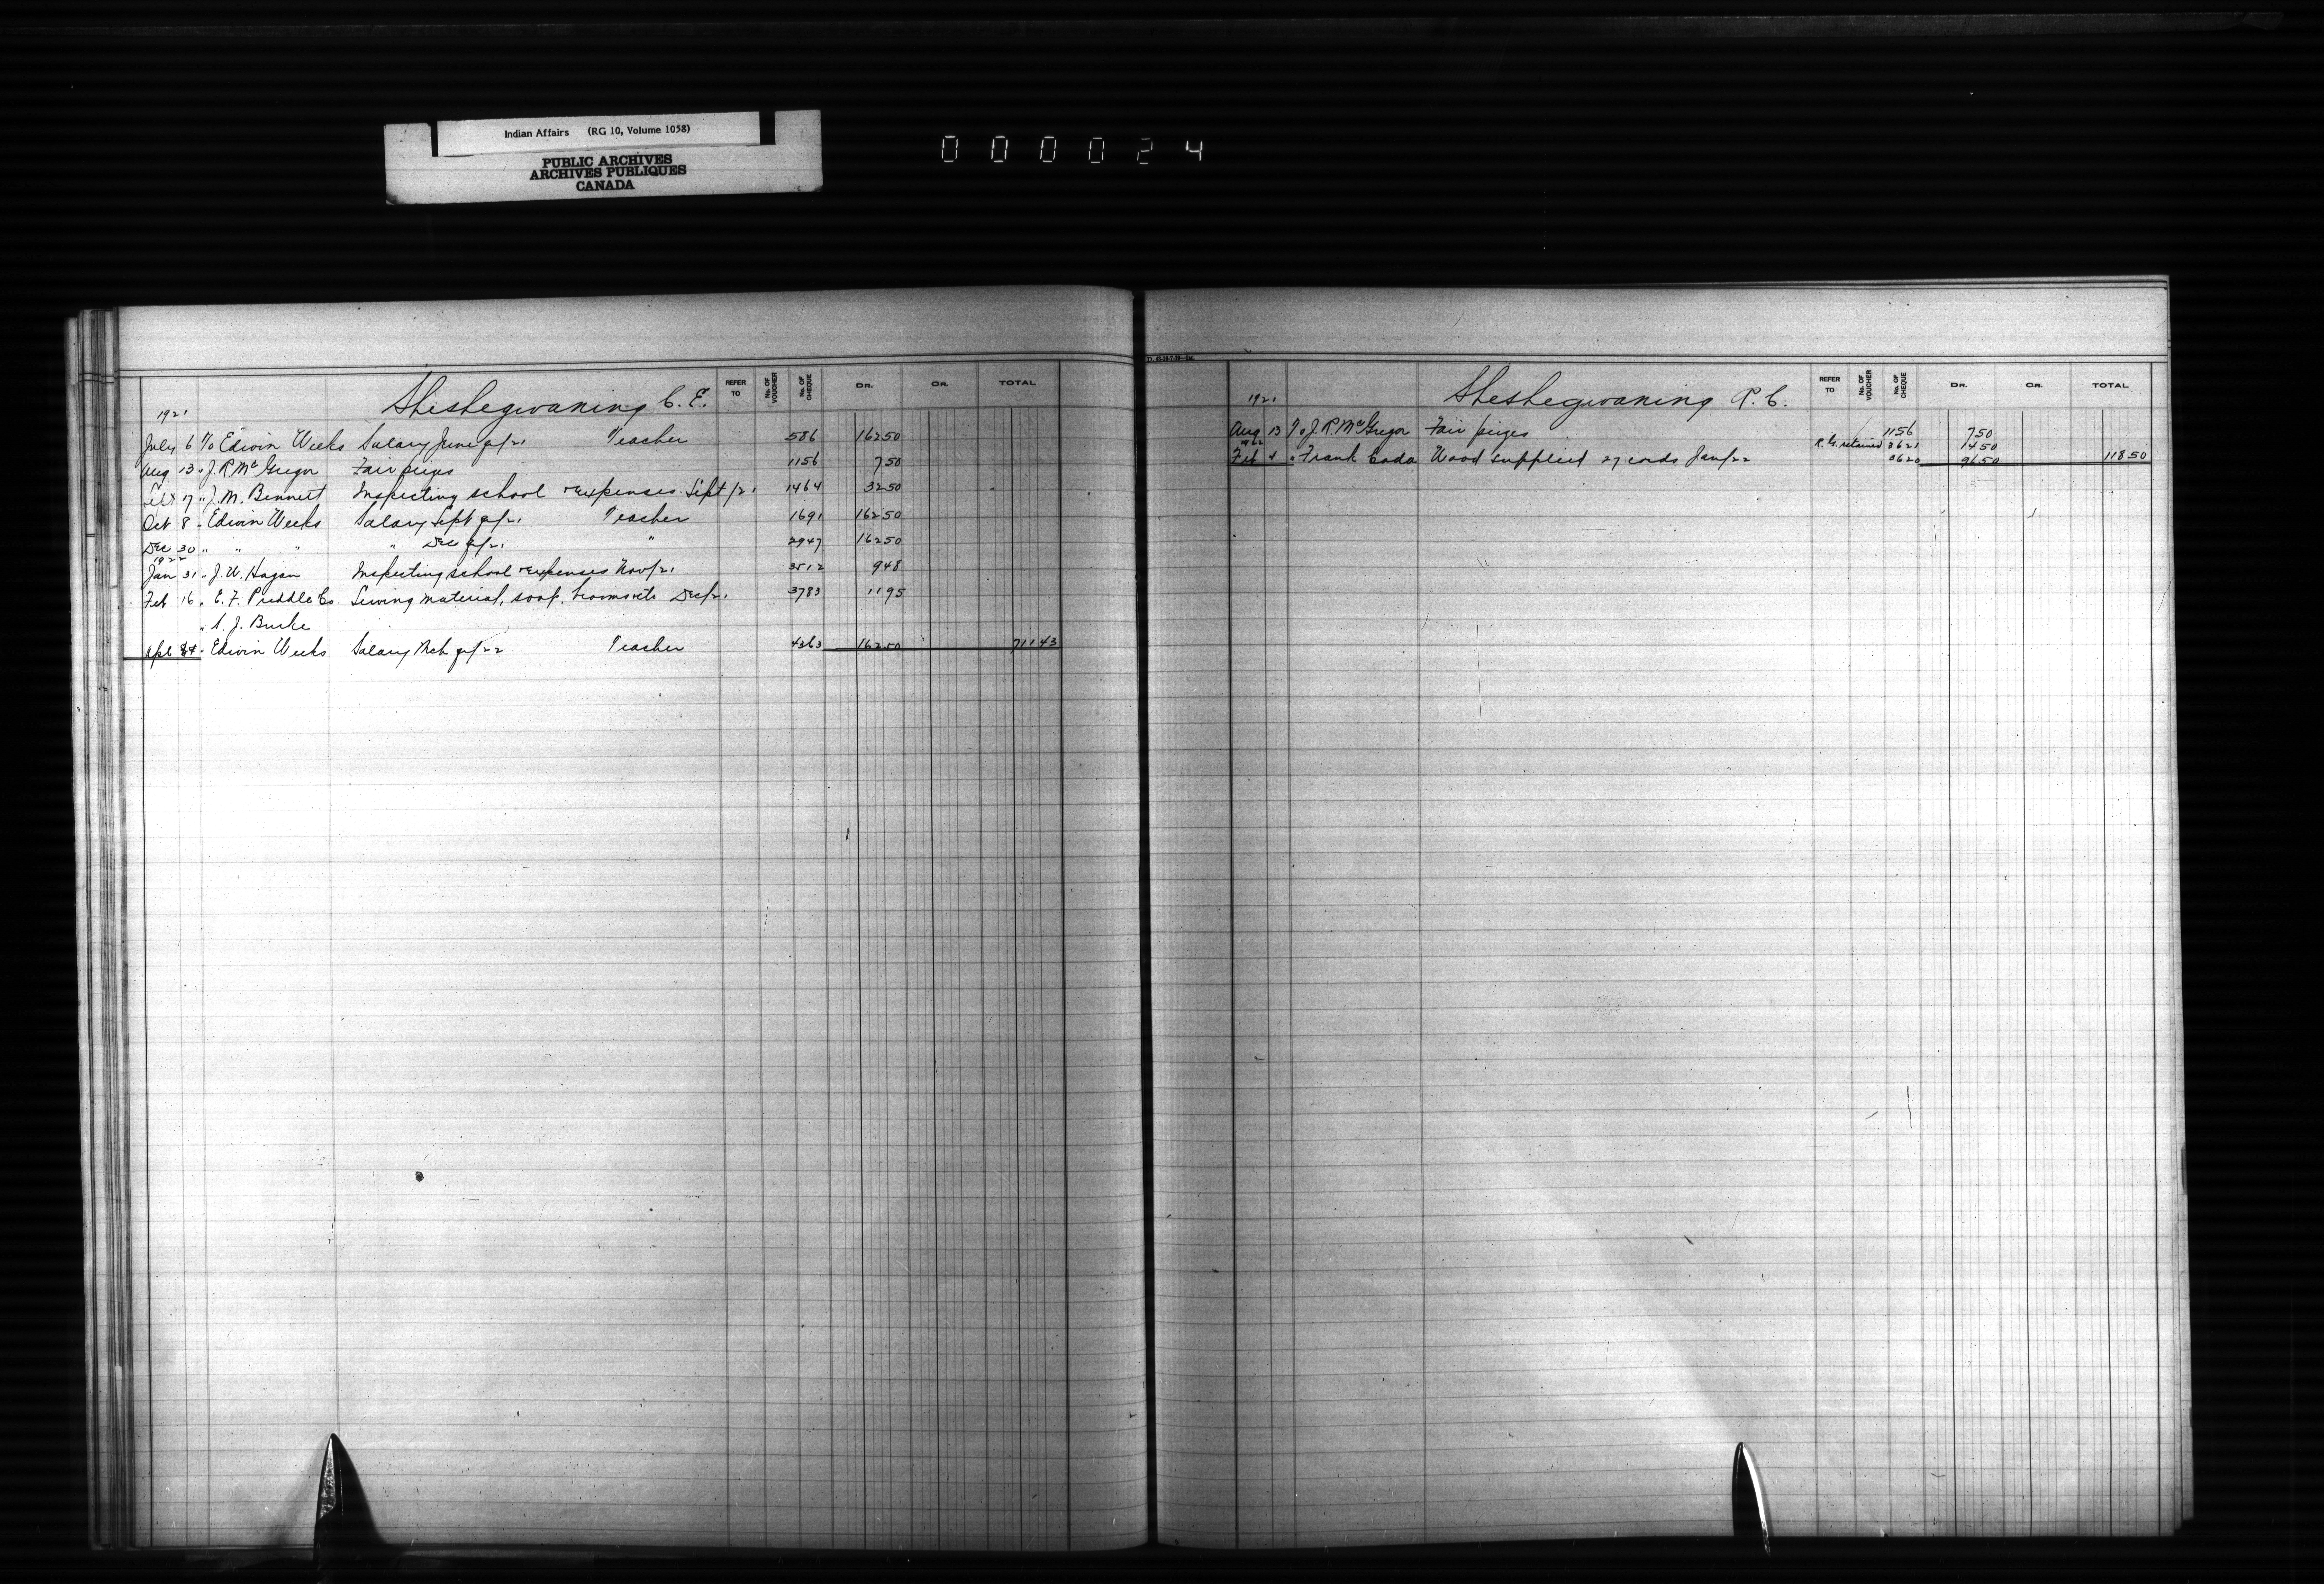 Indian Affairs (RG 10, Volume 1058)
PUBLIC ARCHIVES
ARCHIVES PUBLIQUES
CANADA
000024
Sheshegwaning C. E.
REFER TO No. OF VOUCHER No. OF CHEQUE DR. CR. TOTAL
1921
July 6 To Edwin Weeks Salary June qr/21 Teacher 586 162 50
Aug 13 " J. R. McGregor Fair prizes 1156 7 50
Sept 17 " J. M. Bennett Inspecting school & expenses Sept/21 1464 32 50
Oct 8 " Edwin Weeks Salary Sept qr/21 Teacher 1691 162 50
Dec 30 " " " " Dec qr/21 " 2947 162 50
1922
Jan 31 " J. W. Hagan Inspecting school & expenses Nov/21 3512 9 48
Feb 16 " E. F. Priddle Co. Sewing material, soap, brooms etc Dec/21 3783 11 95
" S. J. Burke
Apl " Edwin Weeks Salary Mch qr/22 Teacher 4363 162 50 711 43
Sheshegwaning R. C.
REFER TO No. OF VOUCHER No. OF CHEQUE DR. CR. TOTAL
1921
Aug 13 To J. R. McGregor Fair prizes 1156 7 50
1922
R. G. retained 3621 14 50
Feb " Frank Cada Wood supplied 27 cords Jan/22 3620 96 50 118 50